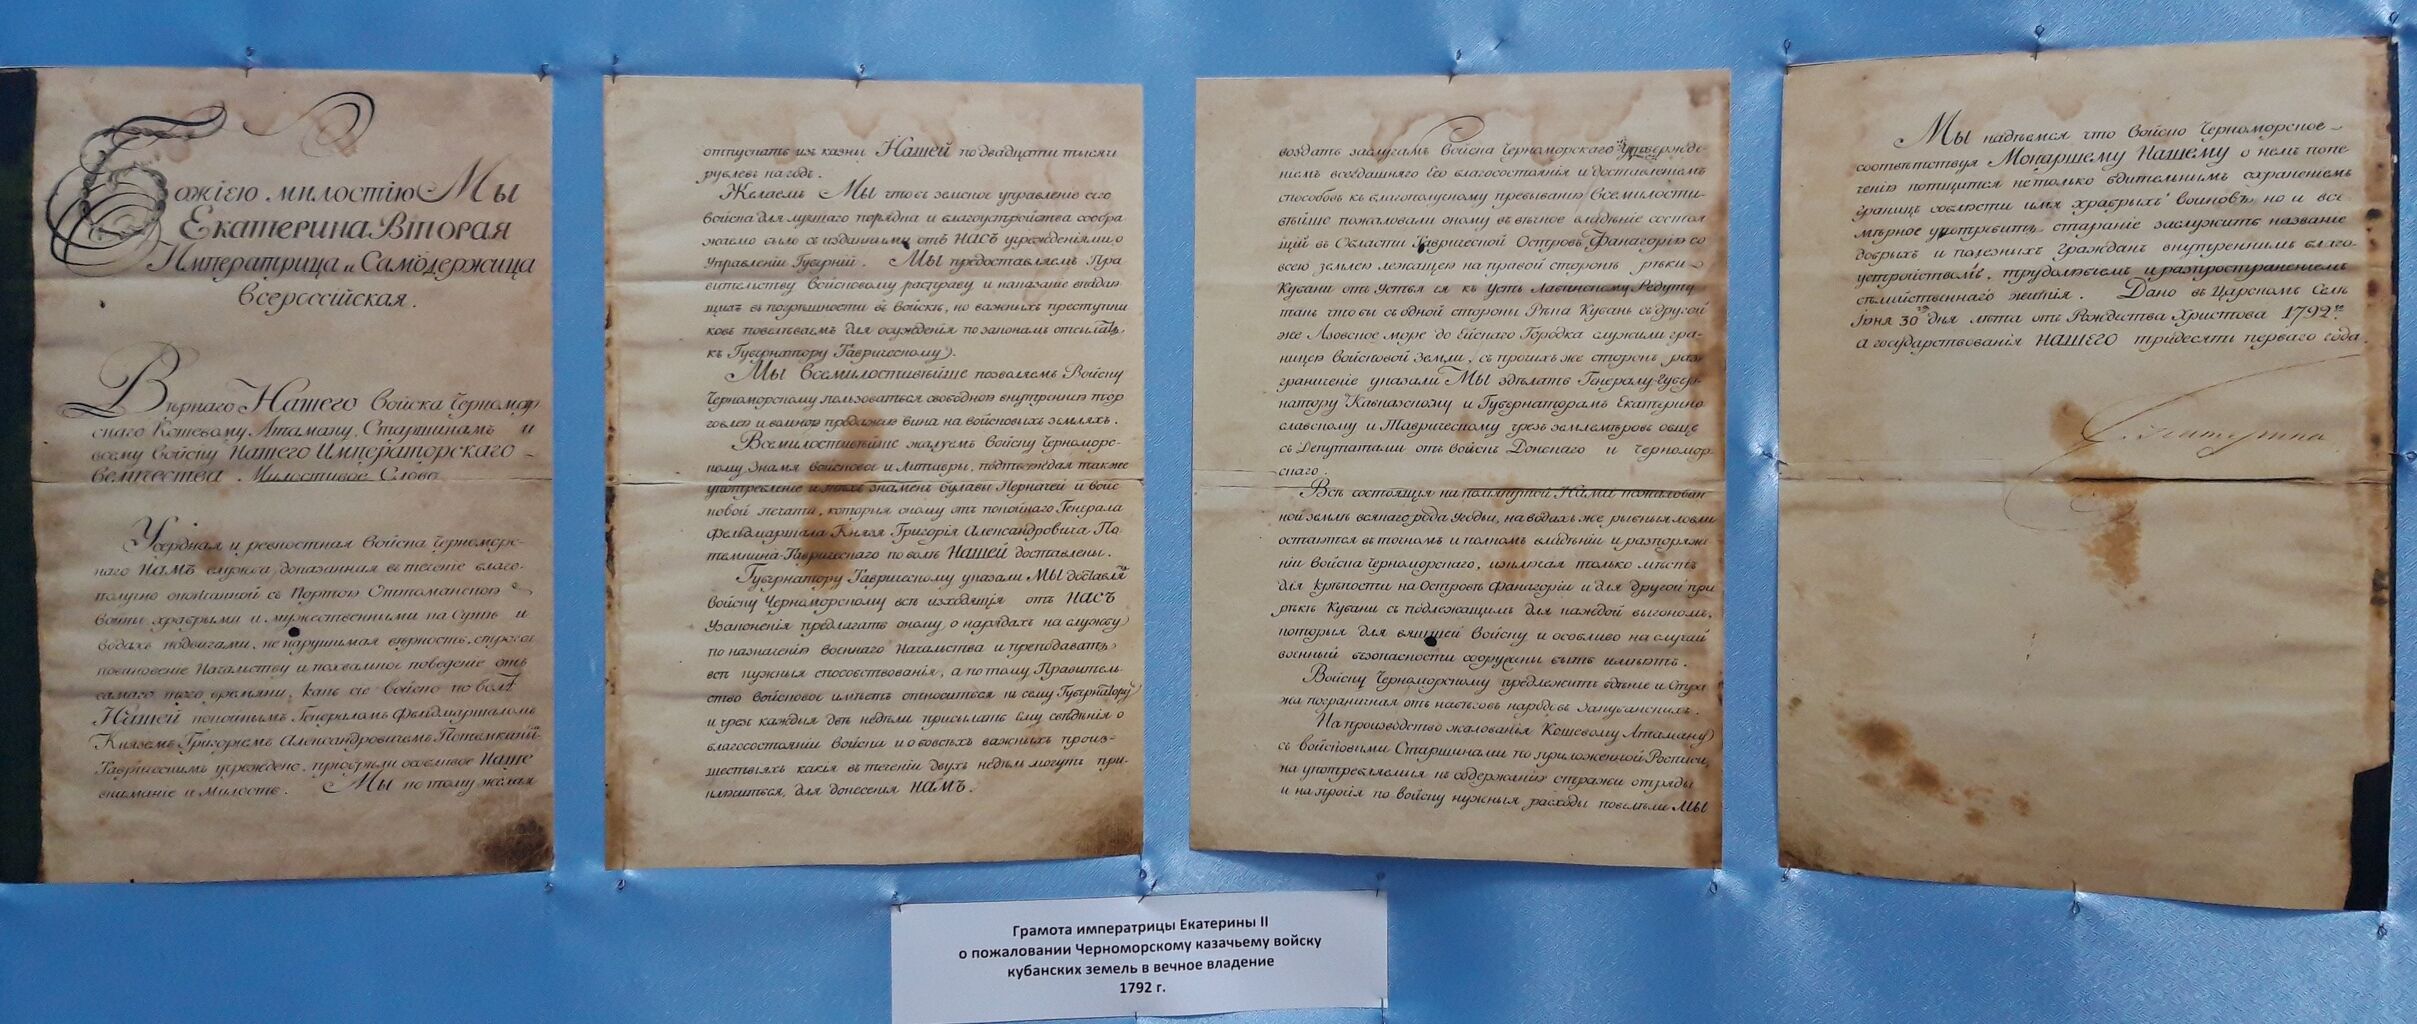 Божіею милостію Мы
Екатерина Вторая
Императрица и Самодержица
Всероссійская.
Вѣрнаго Нашего Войска Черномор
скаго Кошевому Атаману, Старшинамъ и
всему Войску Нашего Императорскаго
Величества Милостивое Слово
Усердная и ревностная Войска Черноморс-
каго НАМЪ служба, доказанная въ теченіе благо-
получно оконченной съ Портою Оттоманскою
войны храбрыми и мужественными на Сушѣ и
водахъ подвигами, не нарушимая вѣрность, строгое
повиновеніе Начальству и похвальное поведеніе отъ
самаго того времяни, какъ сіе войско по волѣ
Нашей покойнымъ Генераломъ Фельдмаршаломъ
Княземъ Григоріемъ Александровичемъ Потемкинымъ
Таврическимъ учреждено, пріобрѣли особливое Наше
вниманіе и Милость. Мы по тому желая
отпускать изъ казны Нашей по двадцати тысячъ
рублевъ на годъ.
Желаемъ Мы чтобъ земское управленіе сего
Войска для лучшаго порядка и благоустройства сообра
жаемо было съ изданными отъ НАСЪ учрежденіями о
Управленіи Губерній. Мы предоставляемъ Пра
вительству Войсковому расправу и наказаніе впадаю
щихъ въ погрѣшности въ Войскѣ, но важныхъ преступни
ковъ повелѣваемъ для осужденія по законамъ отсылать
къ Губернатору Таврическому.
Мы Всемилостивѣйше позволяемъ Войску
Черноморскому пользоваться свободною внутреннею тор
говлею и вольною продажею вина на войсковыхъ земляхъ.
Всемилостивѣйше жалуемъ Войску Черноморс-
кому Знамя войсковое и Литавры, подтверждая также
употребленіе и тѣхъ знаменъ булавы Перначей и войс
ковой печати, которыя оному отъ покойнаго Генерала
Фельдмаршала Князя Григорія Александровича По-
темкина-Таврическаго по волѣ Нашей доставлены.
Губернатору Таврическому указали МЫ доставля
Войску Черноморскому всѣ изходящія отъ НАСЪ
Узаконенія предлагать оному о нарядахъ на службу
по назначенію военнаго Начальства и преподавать
всѣ нужныя способствованія, а потому Правитель-
ство Войсковое имѣетъ относиться къ сему Губернатору
и чрезъ каждыя двѣ недѣли присылать ему свѣдѣнія о
благосостояніи Войска и о всѣхъ важныхъ произ-
шествіяхъ какія въ теченіи двухъ недѣль могутъ при-
ключиться, для донесенія НАМЪ.
воздать заслугамъ Войска Черноморскаго утвержде-
ніемъ всегдашняго Его благосостоянія и доставленіемъ
способовъ къ благополучному пребыванію Всемилости-
вѣйше пожаловали оному въ вѣчное владѣніе состоя
щій въ Области Таврической Островъ Фанагорію со
всею землею лежащею на правой сторонѣ рѣки
Кубани отъ Устья ея къ Усть Лабинскому Редуту
такъ чтобы съ одной стороны Рѣка Кубань съ другой
же Азовское море до Ейскаго Городка служили гра-
ницею войсковой земли, съ прочихъ же сторонъ раз
граниченіе указали Мы здѣлать Генералу-Губер
натору Кавказскому и Губернаторамъ Екатерино
славскому и Таврическому чрезъ землемѣровъ обще
съ Депутатами отъ войскъ Донскаго и Черномор-
скаго.
Всѣ состоящія на помянутой Нами пожалован
ной землѣ всякаго рода Угодьи, на водахъ же рыбныя ловли
остаются въ точномъ и полномъ владѣніи и разпоряже
ніи Войска Черноморскаго, изключая только мѣстъ
для крѣпости на Островѣ Фанагоріи и для другой при
рѣкѣ Кубани съ подлежащимъ для каждой выгономъ,
которыя для вящшей Войску и особливо на случай
военный безопасности сооружены быть имѣютъ.
Войску Черноморскому предлежитъ бдѣніе и Стра
жа пограничная отъ набѣговъ народовъ закубанскихъ.
На производство жалованья Кошевому Атаману
съ войсковыми Старшинами по приложенной Росписи,
на употребляемыя къ содержанію стражи отряды
и на прочія по войску нужныя расходы повелѣли МЫ
Мы надѣемся что Войско Черноморское
соотвѣтствуя Монаршему Нашему о немъ попе-
ченію потщится не только бдительнымъ охраненіемъ
границъ соблюсти имя храбрыхъ воиновъ но и все
мѣрное употребить стараніе заслужить названіе
добрыхъ и полезныхъ гражданъ внутреннимъ благо-
устройствомъ, трудолюбіемъ и разпространеніемъ
семѣйственнаго житія. Дано въ Царскомъ Селѣ
Іюня 30го дня лѣта отъ Рождества Христова 1792го
а государствованія НАШЕГО тридесять перваго года.
Екатерина
Грамота императрицы Екатерины II
о пожаловании Черноморскому казачьему войску
кубанских земель в вечное владение
1792 г.